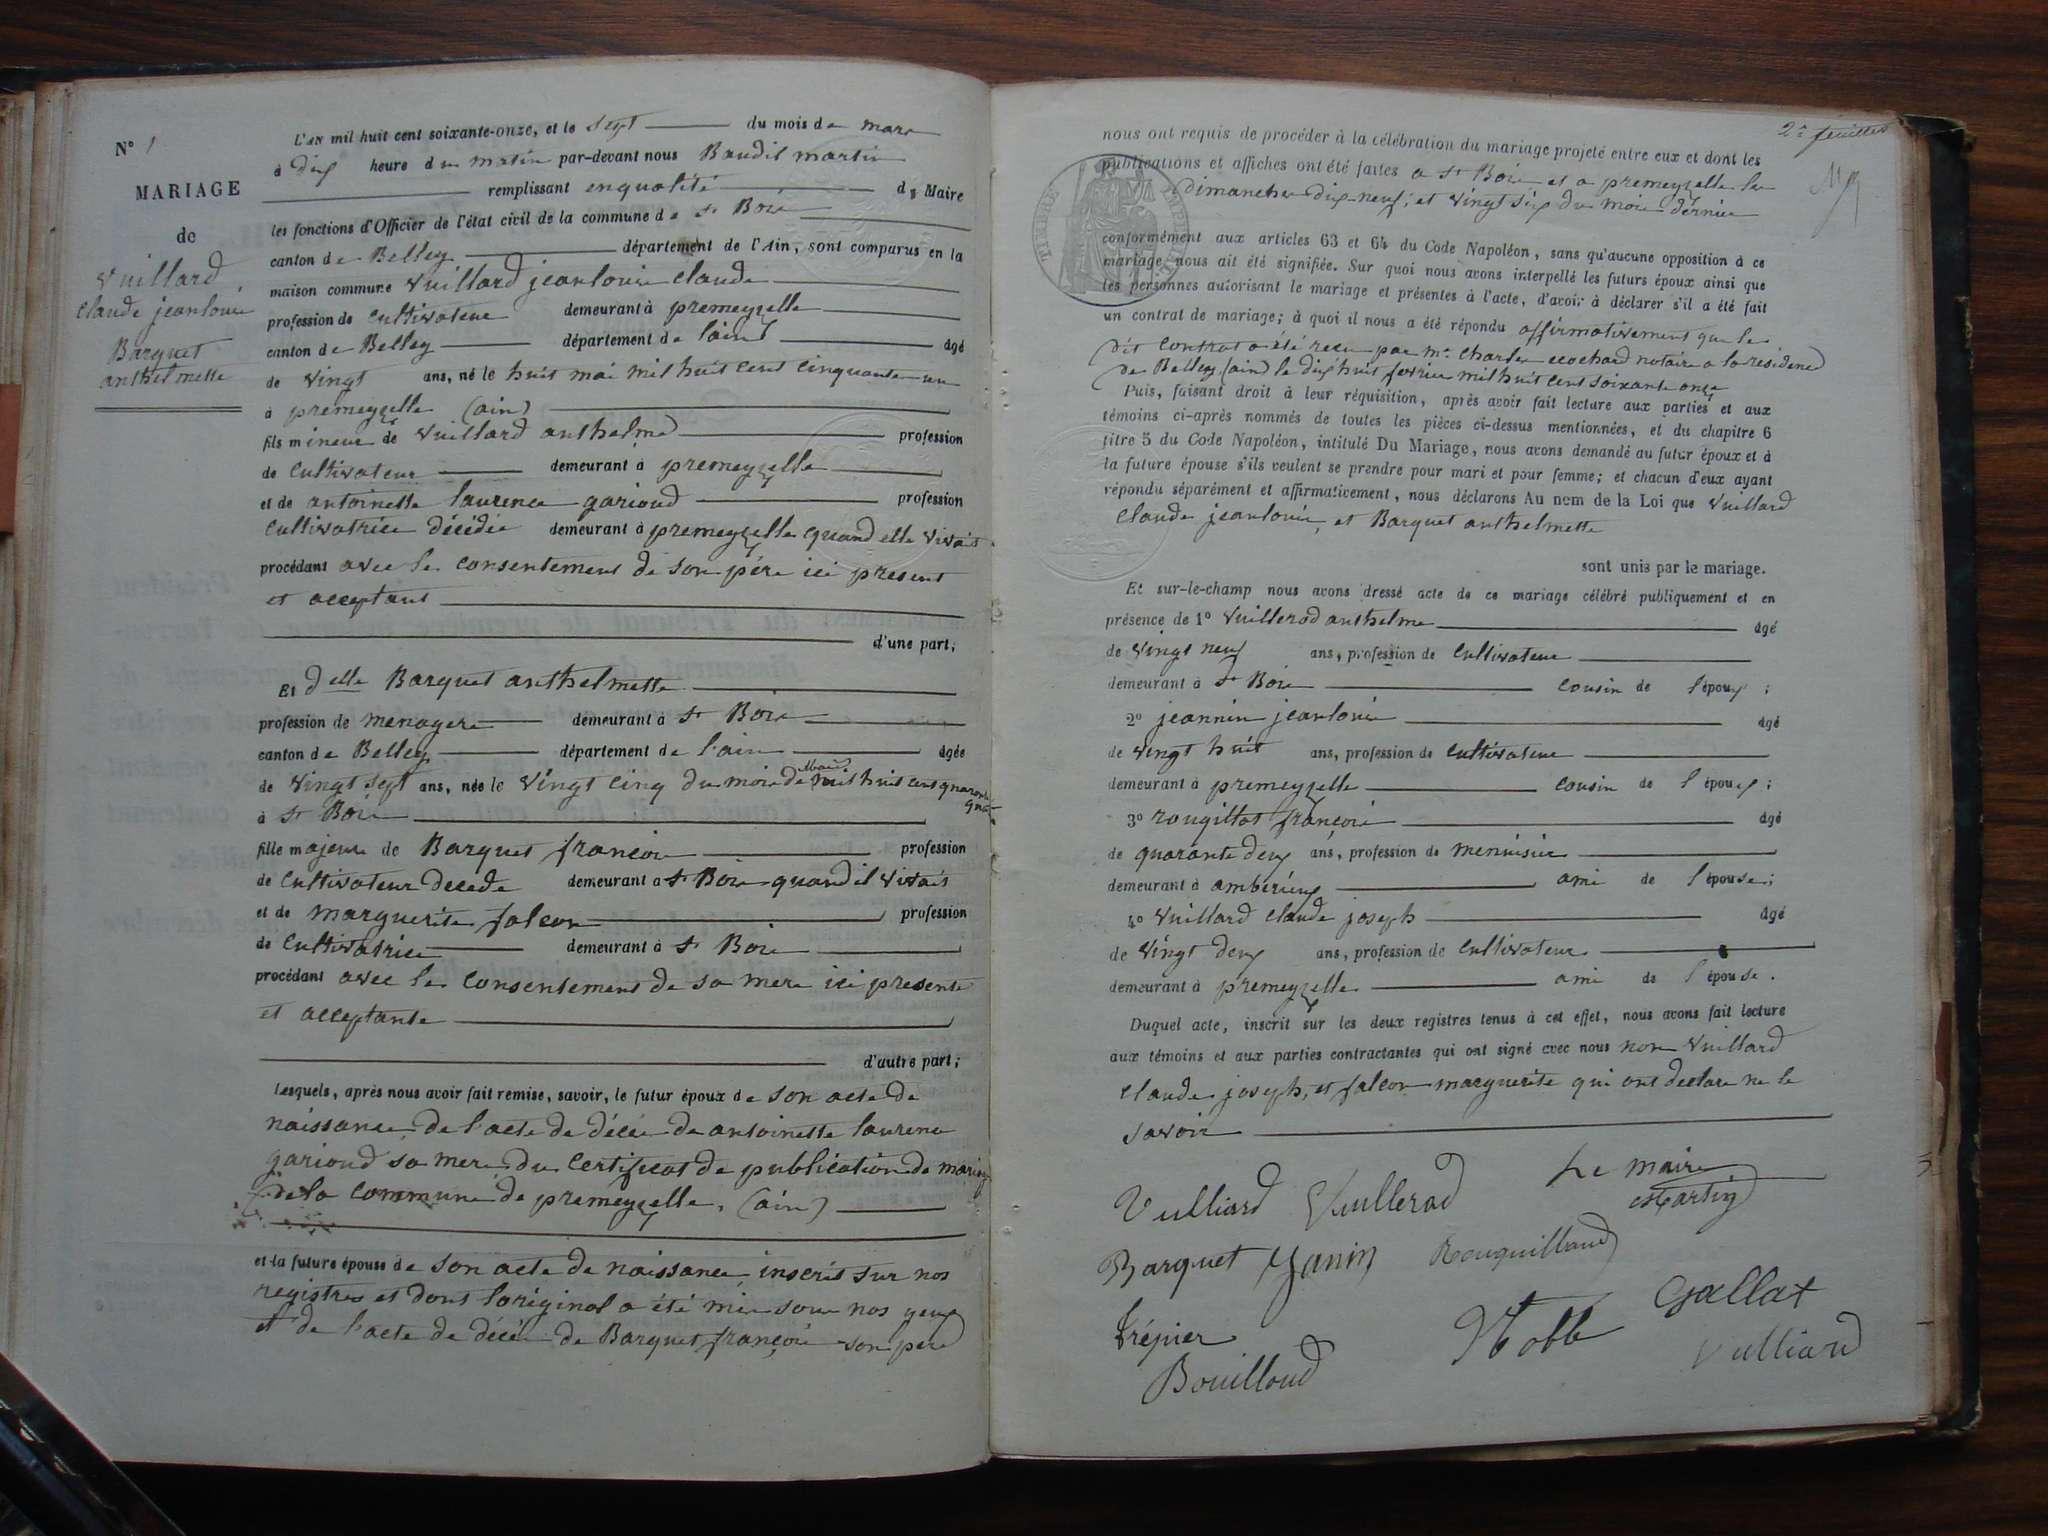 N° 1
MARIAGE
de
Vuillard
Claude jeanlouis
Barquet
anthelmette
L'an mil huit cent soixante-onze, et le sept du mois de mars
à dix heure du matin par-devant nous Baudil martin
remplissant enqualité de Maire
les fonctions d'Officier de l'état civil de la commune de St Bois
canton de Belley département de l'Ain, sont comparus en la
maison commune Vuillard jeanlouis claude
profession de cultivateur demeurant à premeyzelle
canton de Belley département de l'ain âgé
de vingt ans, né le huit mai mil huit cent cinquante un
à premeyzelle (ain)
fils mineur de Vuillard anthelme profession
de cultivateur demeurant à premeyzelle
et de antoinette laurence garioud profession
cultivatrice décédée demeurant à premeyzelle quand elle vivait
procédant avec le consentement de son père ici present
et acceptant
d'une part;
Et delle Barquet anthelmette
profession de menagere demeurant à St Bois
canton de Belley département de l'ain âgée
de vingt sept ans, née le vingt cinq du mois de mil huit cent quarante
à St Bois
fille majeure de Barquet françois profession
de cultivateur decede demeurant a St Bois quand il vivait
et de marguerite falcon profession
de cultivatrice demeurant à St Bois
procédant avec le consentement de sa mere ici presente
et acceptante
d'autre part;
Lesquels, après nous avoir fait remise, savoir, le futur époux de son acte de
naissance, de l'acte de décès de antoinette laurence
garioud sa mere du certificat de publication de mariage
de la commune de premeyzelle, (ain)
et la future épouse de son acte de naissance inscrit sur nos
registres et dont l'original a été mis sous nos yeux
et de l'acte de décès de Barquet françois son père
2e feuillet
nous ont requis de procéder à la célébration du mariage projeté entre eux et dont les
publications et affiches ont été faites a St Bois et a premeyzelle les
dimanches dix-neuf, et vingt six du mois dernier
TIMBRE IMPERIAL
conformément aux articles 63 et 64 du Code Napoléon, sans qu'aucune opposition à ce
mariage nous ait été signifiée. Sur quoi nous avons interpellé les futurs époux ainsi que
les personnes autorisant le mariage et présentes à l'acte, d'avoir à déclarer s'il a été fait
un contrat de mariage; à quoi il nous a été répondu affirmativement que le
dit contrat a été recu par me charles ecochard notaire a la residence
de Belley (ain) le dix huit fevrier mil huit cent soixante onze
Puis, faisant droit à leur réquisition, après avoir fait lecture aux parties et aux
témoins ci-après nommés de toutes les pièces ci-dessus mentionnées, et du chapitre 6
titre 5 du Code Napoléon, intitulé Du Mariage, nous avons demandé au futur époux et à
la future épouse s'ils veulent se prendre pour mari et pour femme; et chacun d'eux ayant
répondu séparément et affirmativement, nous déclarons Au nom de la Loi que Vuillard
Claude jeanlouis, et Barquet anthelmette
sont unis par le mariage.
Et sur-le-champ nous avons dressé acte de ce mariage célébré publiquement et en
présence de 1° Vuillerod anthelme âgé
de vingt neuf ans, profession de cultivateur
demeurant à St Bois cousin de l'époux;
2° jeannin jeanlouis âgé
de vingt huit ans, profession de cultivateur
demeurant à premeyzelle cousin de l'époux;
3° rougillot françois âgé
de quarante deux ans, profession de menuisier
demeurant à amberieux ami de l'épouse;
4° Vuillard claude joseph âgé
de vingt deux ans, profession de cultivateur
demeurant à premeyzelle ami de l'épouse.
Duquel acte, inscrit sur les deux registres tenus à cet effet, nous avons fait lecture
aux témoins et aux parties contractantes qui ont signé avec nous non Vuillard
Claude joseph, et falcon marguerite qui ont declare ne le
savoir
Vulliard Vuillerod Le maire
Martin
Barquet Janin Rouguilland
Trépier Gallat
Bouilloud Vulliard